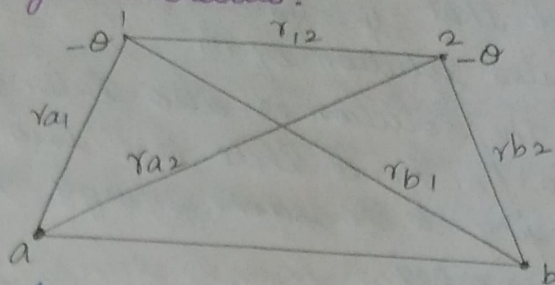 1
-θ
r12
2
-θ
ra1
ra2
rb1
rb2
a
b